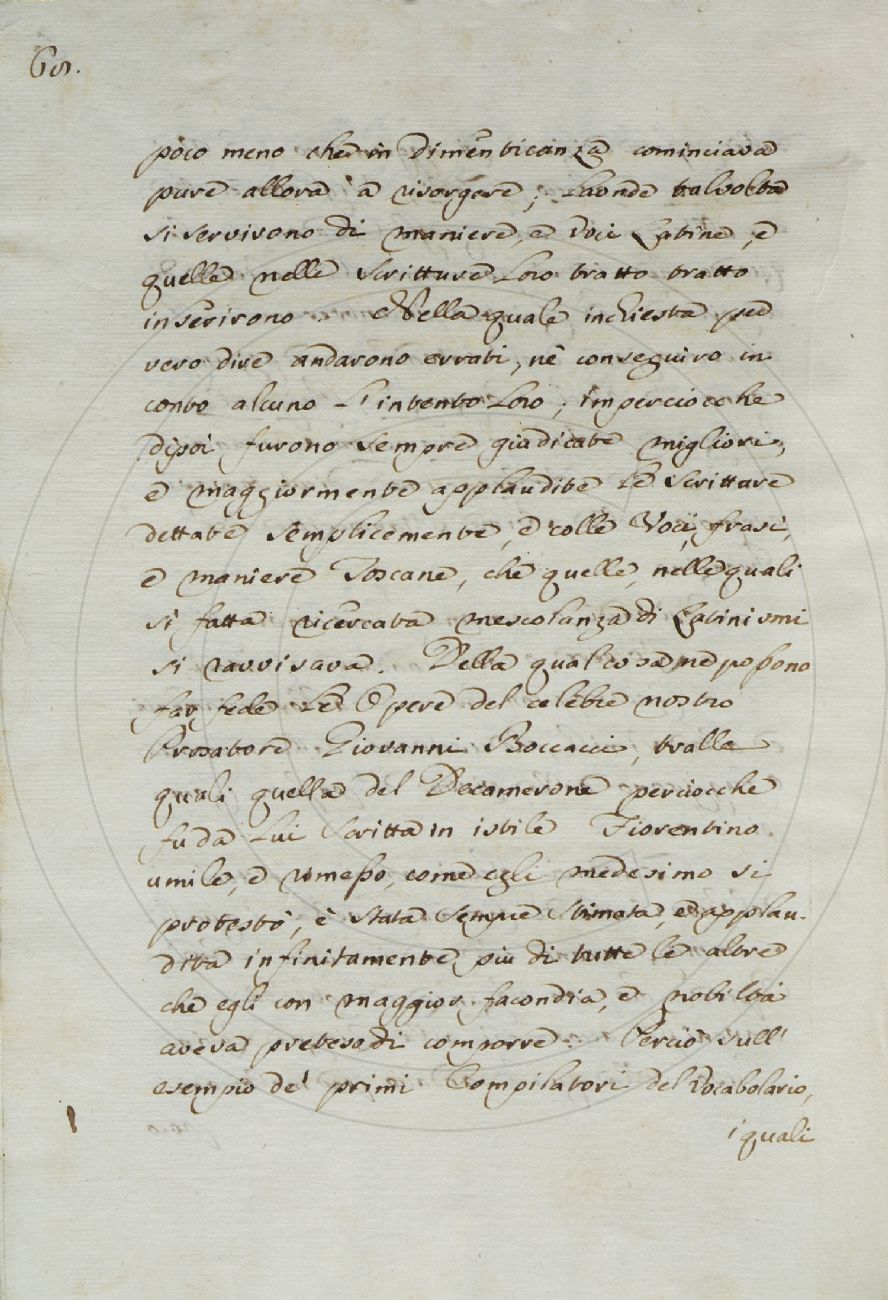 poco meno che in dimenticanza cominciava
pure allora a risorgere; Laonde talvolta
si servirono di maniere, e voci Latine, e
quelle nelle Scritture Loro tratto tratto
inserirono. Nella quale inchiesta per
vero dire andarono errati, nè conseguiro in
conto alcuno L'intento Loro; imperciocche
dipoi furono sempre giudicate migliori,
e maggiormente applaudite Le Scritture
dettate semplicemente, e colle Voci, frasi,
e maniere Toscane, che quelle, nelle quali
si fatta ricercata mescolanza di Latinismi
si ravvisava. Della qual cosa ne possono
far fede Le Opere del celebre nostro
Prosatore Giovanni Boccacci, tralle
quali quella del Decamerone perciocche
fu da Lui Scritta in istile Fiorentino
umile, e rimesso, come egli medesimo si
protestò, è stata sempre stimata, e applau-
dita infinitamente più di tutte le altre
che egli con maggior facondia, e nobiltà
aveva preteso di comporre. Perciò sull'
esempio de' primi Compilatori del Vocabolario,
i quali